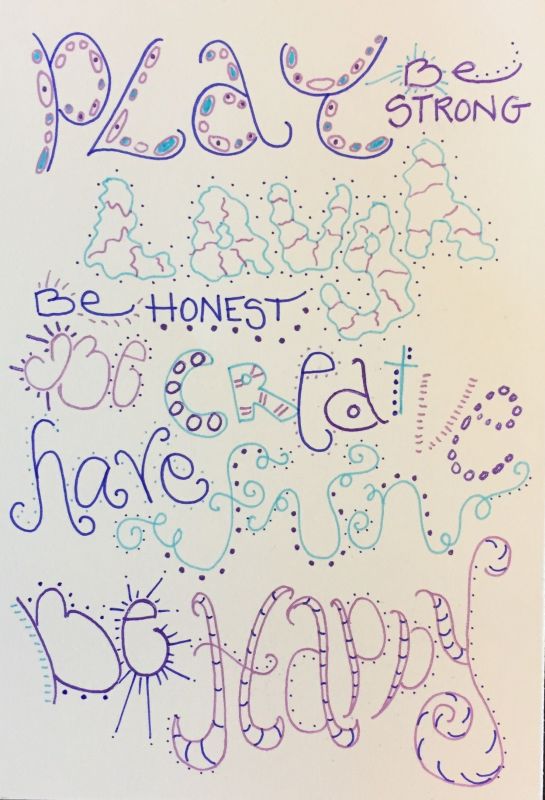 PLAY Be STRONG
LAUgh
Be HONEST
Be CReative
have fun
Be HAPPY